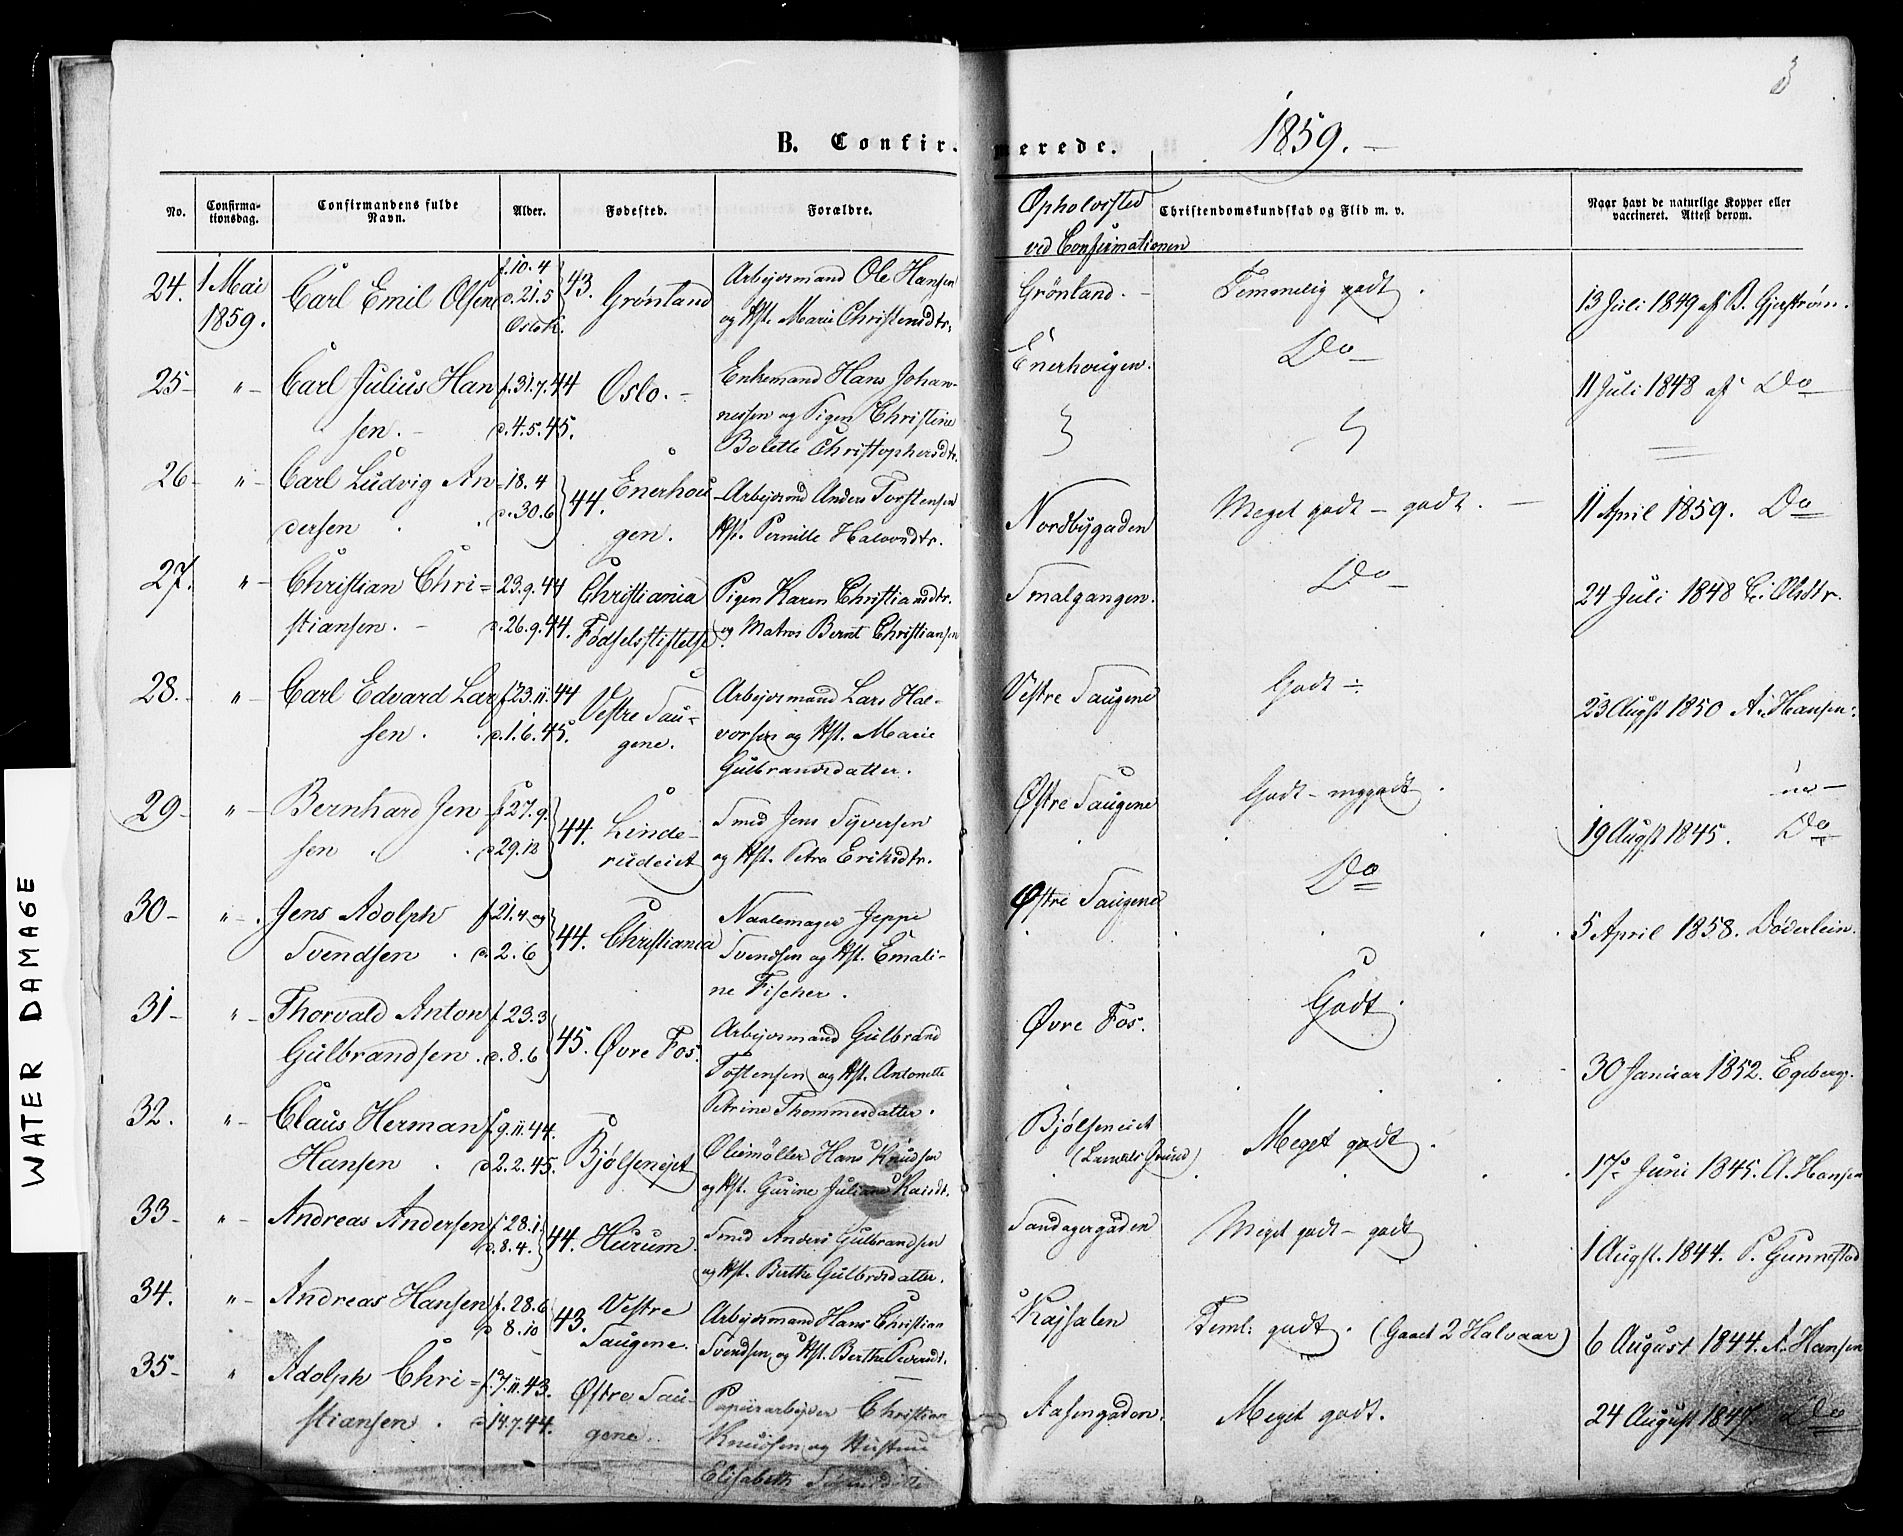 3
B. Confirmerede. 1859.
No. | Confirmationsdag. | Confirmandens fulde Navn. | Alder. | Fødested. | Forældre. | Opholdssted ved Confirmationen | Christendomskundskab og Flid m. v. | Naar havt de naturlige Kopper eller vaccineret. Attest derom.
24. 1 Mai Carl Emil Olsen f. 10.4 43. Grønland Arbejdsmand Ole Hansen Grönland. Temmelig godt. 13 Juli 1849 af B. Gjestrøm.
1859. d. 21.5 og Hst. Marie Christensdtr.
Oslo K.
25 " Carl Julius Han f. 31.7.44 Oslo. Enkemand Hans Johan- Enerhougen. Do 11 Juli 1848 af Do
sen. d. 4.5.45. nessen og Pigen Christine
Bolette Christophersdtr.
26 " Carl Ludvig An 18.4 44. Enerhou Arbejdsmd Anders Torstensen Nordbygaden Meget godt - godt. 11 April 1859. Do
dersen d. 30.6 gen. Hst. Pernille Halvorsdtr.
27. " Christian Chri= 23.9.44 Christiania Pigen Karen Christiansdtr. Smalgangen. Do 24 Juli 1848 C: Olsdtr.
stiansen. d. 26.9.44. Fødselsstiftelse og Matros Bernt Christiansen
28. " Carl Edvard Lar f. 23.11.44 Vestre Sau- Arbejdsmand Lars Hal- Vestre Saugene Godt 23 Augst 1850 A. Hansen.
sen. d. 1.6.45. gene. vorsen og Hst. Marie
Gulbrandsdatter.
29 " Bernhard Jen f. 27.9. 44. Linde- Smed Jens Syversen Østre Saugene Godt - mggodt. 19 Augst 1845. Do
sen d. 29.12 rudeiet og Hst. Petra Eriksdtr.
30 " Jens Adolph f. 21.4 og 44. Christiania Naalemager Jeppe Østre Saugene Do 5 April 1858. Döderlein.
Svendsen d. 2.6 Svendsen og Hst. Emali-
ne Fischer.
31 " Thorvald Anton f. 23.3 45. Øvre Fos. Arbejdsmand Gulbrand Øvre Fos. Godt. 30 Januar 1852. Egeberg.
Gulbrandsen d. 8.6 Tostensen og Hst. Antonette
Petrine Thommesdatter.
32. " Claus Herman f. 9.11.44. Bjølseneiet Oliemöller Hans Knudsen Bjølseneiet Meget godt. 17 Juni 1845. A. Hansen
Hansen d. 2.2.45. og Hst. Gurine Juliane
33 " Andreas Andersen f. 28.1. 44. Hurum. Smed Anders Gulbrandsen Sandagergaden Meget godt - godt 1 Augst. 1844. P. Gunnestad
d. 8.4. og Hst. Berthe Gulbrdsdatter.
34. " Andreas Hansen f. 28.6 43. Vestre Arbejdsmand Hans Christian Kajsalen Teml: godt. (Gaaet 2 Halvaar) 6 August 1844. A. Hansen
d 8.10 Saugene. Svendsen og Hst. Berthe
35 " Adolph Chri= f. 7.11.43. Østre Sau- Papiirarbejder Christian Aasengaden. Meget godt. 24 August Do
stiansen. d. 14.7.44. gene. Knudsen og Hustrue
Elisabeth
WATER DAMAGE